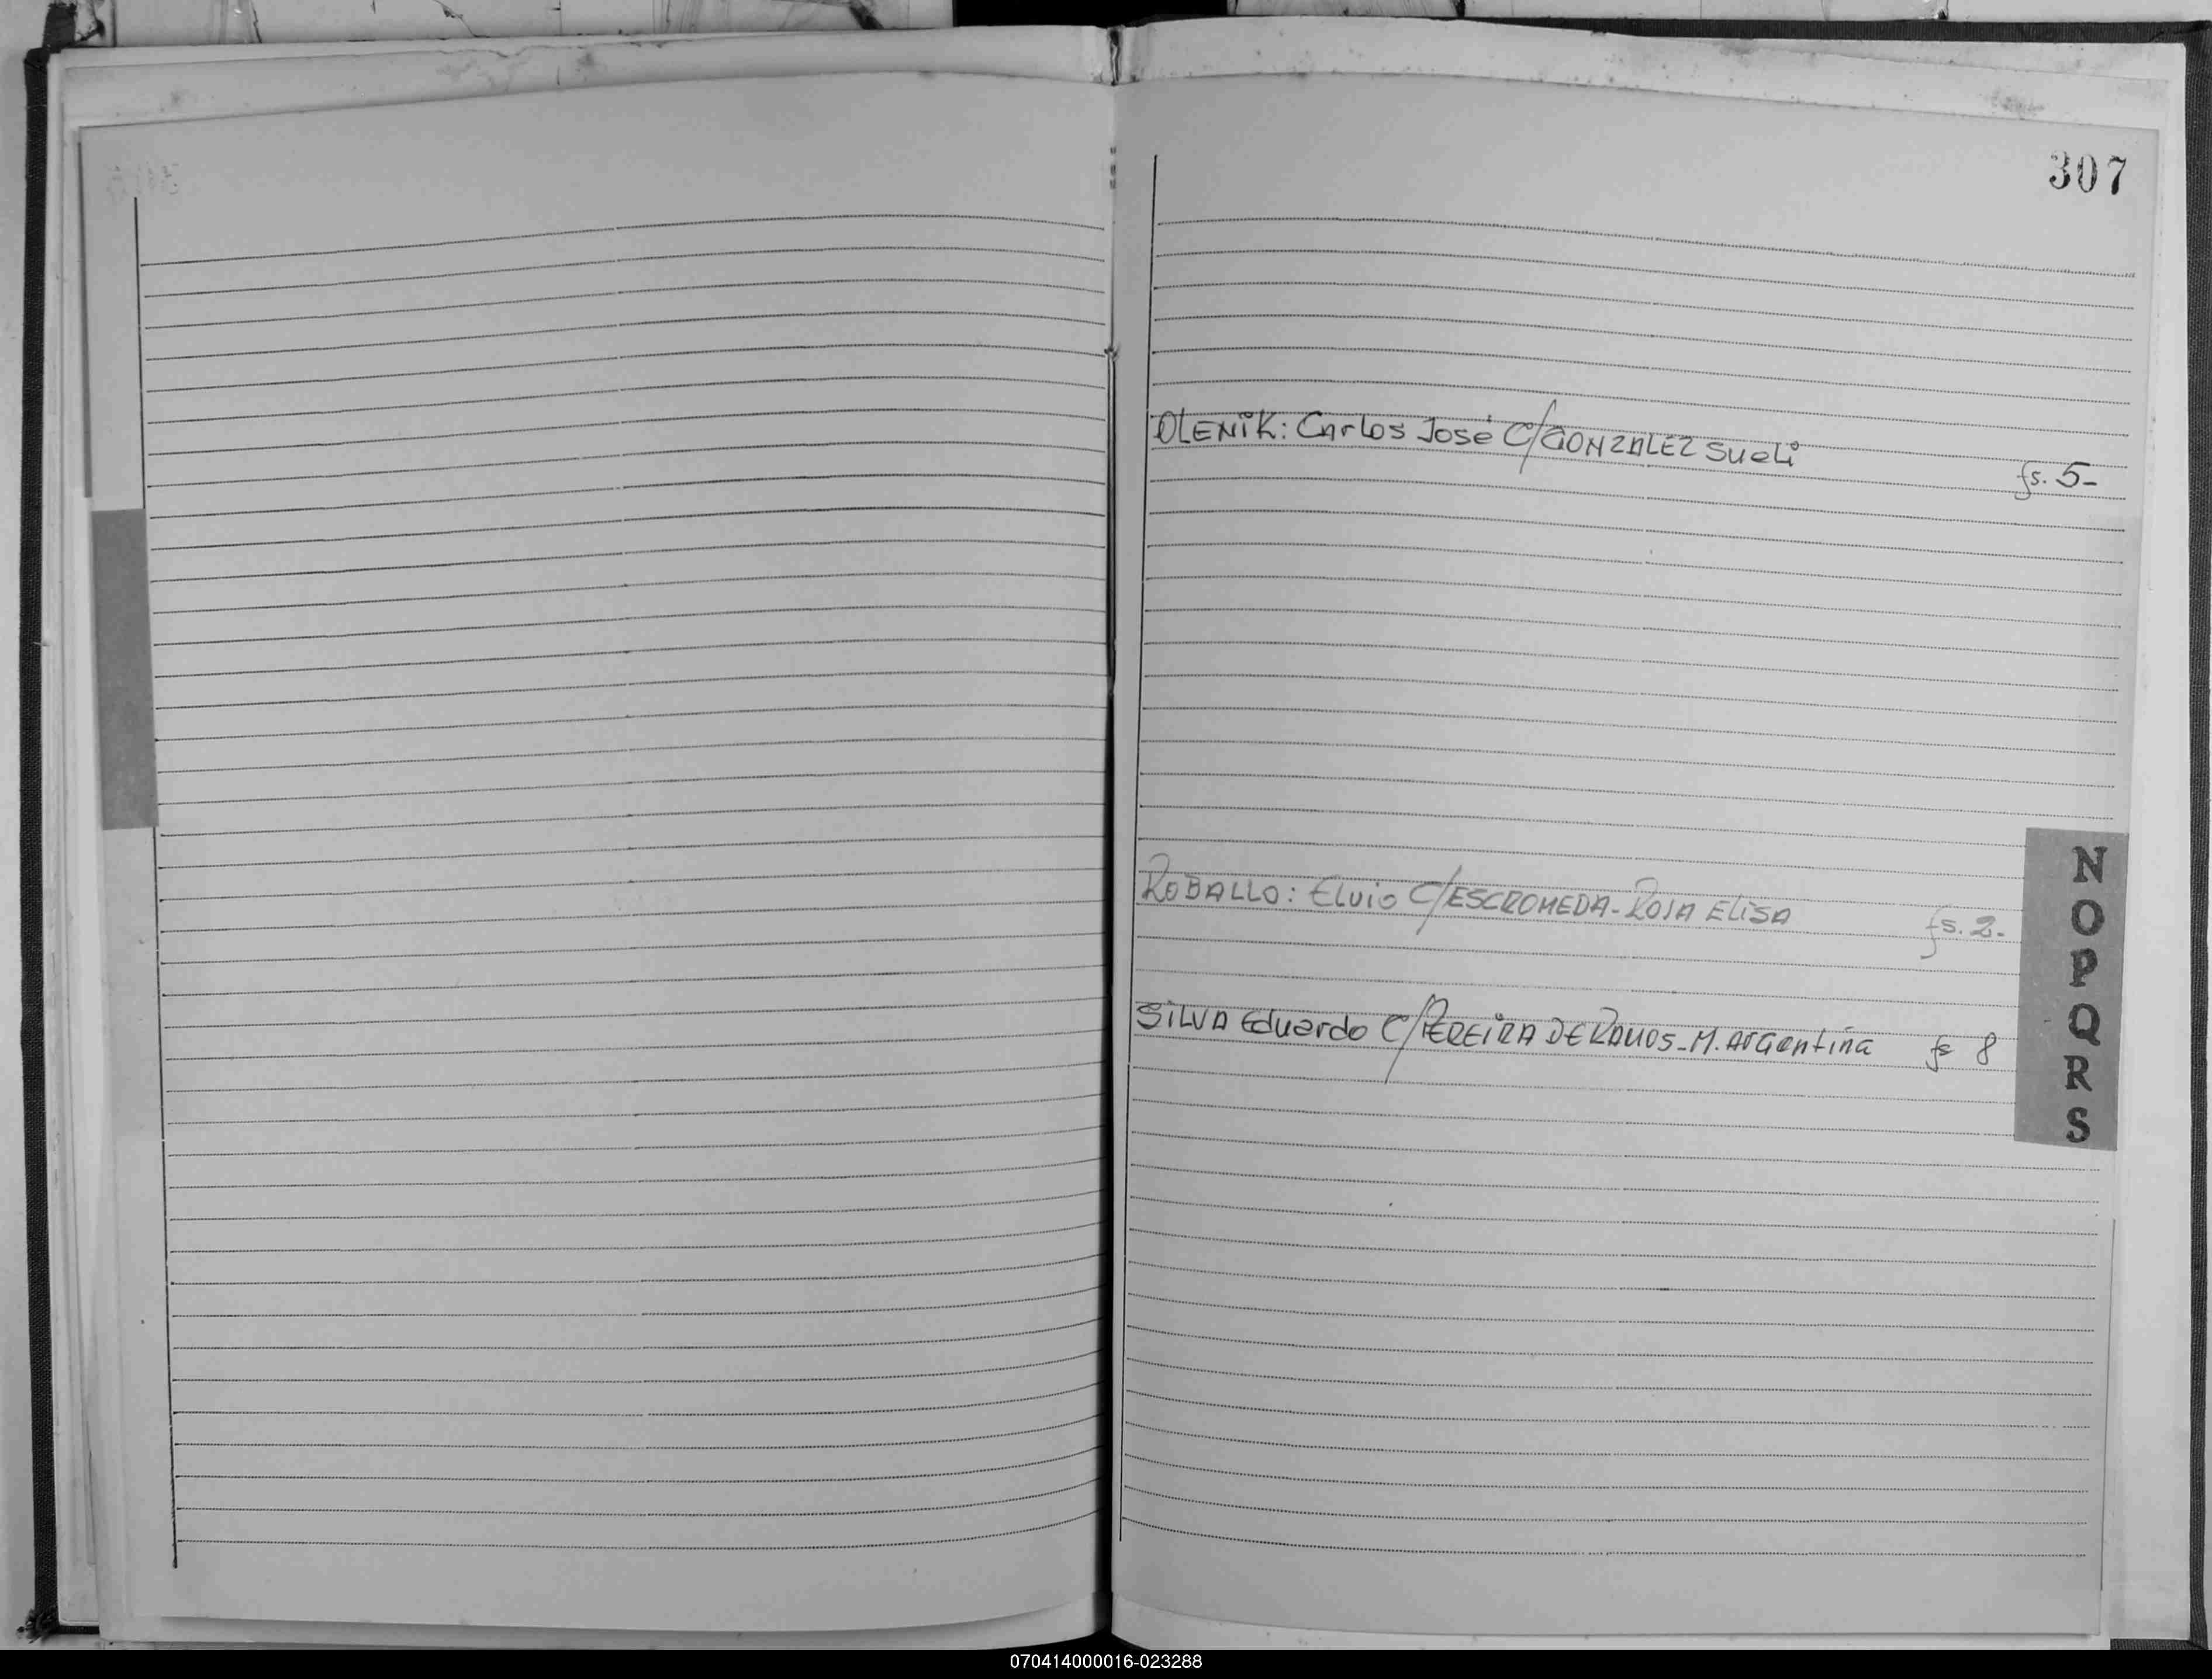 307
OLENiK: Carlos José C/GONZALEZ Sueli fs. 5-
ROBALLO: Elvio C/ESCROMEDA-ROSA ELiSA fs. 2-
SiLVA Eduardo C/PEREiRA DE RAMOS-M. ArGentina fs 8
N
O
P
Q
R
S
070414000016-023288